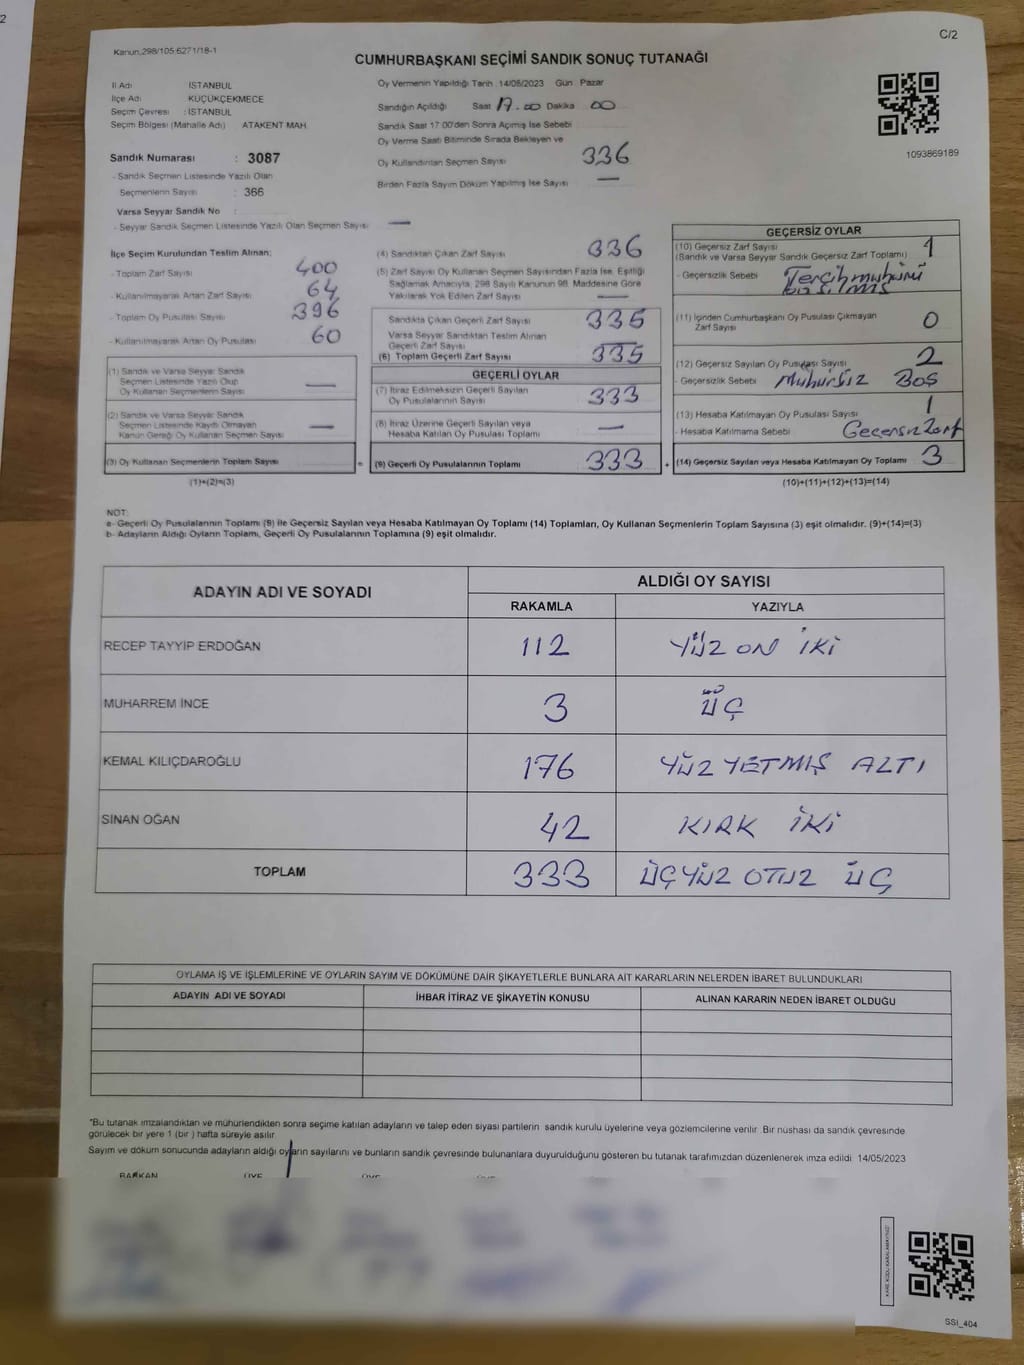 2
C/2
Kanun.298/105.6271/18-1
CUMHURBAŞKANI SEÇİMİ SANDIK SONUÇ TUTANAĞI
İl Adı İSTANBUL
İlçe Adı KÜÇÜKÇEKMECE
Seçim Çevresi : İSTANBUL
Seçim Bölgesi (Mahalle Adı) ATAKENT MAH.
Sandık Numarası : 3087
- Sandık Seçmen Listesinde Yazılı Olan
Seçmenlerin Sayısı : 366
Varsa Seyyar Sandık No :
- Seyyar Sandık Seçmen Listesinde Yazılı Olan Seçmen Sayısı —
Oy Vermenin Yapıldığı Tarih 14/05/2023 Gün Pazar
Sandığın Açıldığı Saat 17.00 Dakika 00
Sandık Saat 17:00'den Sonra Açımış İse Sebebi
Oy Verme Saati Bitiminde Sırada Bekleyen ve
Oy Kullandırılan Seçmen Sayısı 336
Birden Fazla Sayım Döküm Yapılmış İse Sayısı —
1093869189
İlçe Seçim Kurulundan Teslim Alınan;
- Toplam Zarf Sayısı 400
- Kullanılmayarak Artan Zarf Sayısı 64
- Toplam Oy Pusulası Sayısı 396
- Kullanılmayarak Artan Oy Pusulası 60
(1) Sandık ve Varsa Seyyar Sandık
Seçmen Listesinde Yazılı Olup
Oy Kullanan Seçmenlerin Sayısı —
(2) Sandık ve Varsa Seyyar Sandık
Seçmen Listesinde Kaydı Olmayan
Kanun Gereği Oy Kullanan Seçmen Sayısı —
(3) Oy Kullanan Seçmenlerin Toplam Sayısı
(1)+(2)=(3)
=
(4) Sandıktan Çıkan Zarf Sayısı 336
(5) Zarf Sayısı Oy Kullanan Seçmen Sayısından Fazla İse, Eşitliği
Sağlamak Amacıyla, 298 Sayılı Kanunun 98. Maddesine Göre
Yakılarak Yok Edilen Zarf Sayısı —
Sandıkta Çıkan Geçerli Zarf Sayısı 335
Varsa Seyyar Sandıktan Teslim Alınan
Geçerli Zarf Sayısı —
(6) Toplam Geçerli Zarf Sayısı 335
GEÇERLİ OYLAR
(7) İtiraz Edilmeksizin Geçerli Sayılan
Oy Pusulalarının Sayısı 333
(8) İtiraz Üzerine Geçerli Sayılan veya
Hesaba Katılan Oy Pusulaları Toplamı —
(9) Geçerli Oy Pusulalarının Toplamı 333
+
GEÇERSİZ OYLAR
(10) Geçersiz Zarf Sayısı 1
(Sandık ve Varsa Seyyar Sandık Geçersiz Zarf Toplamı)
- Geçersizlik Sebebi Tercih mühürü
basılmış
(11) İçinden Cumhurbaşkanı Oy Pusulası Çıkmayan
Zarf Sayısı 0
(12) Geçersiz Sayılan Oy Pusulası Sayısı 2
- Geçersizlik Sebebi Mühürsüz Boş
(13) Hesaba Katılmayan Oy Pusulası Sayısı 1
- Hesaba Katılmama Sebebi Geçersiz Zarf
(14) Geçersiz Sayılan veya Hesaba Katılmayan Oy Toplamı 3
(10)+(11)+(12)+(13)=(14)
NOT:
a- Geçerli Oy Pusulalarının Toplamı (9) ile Geçersiz Sayılan veya Hesaba Katılmayan Oy Toplamı (14) Toplamları, Oy Kullanan Seçmenlerin Toplam Sayısına (3) eşit olmalıdır. (9)+(14)=(3)
b- Adayların Aldığı Oyların Toplamı, Geçerli Oy Pusulalarının Toplamına (9) eşit olmalıdır.
ADAYIN ADI VE SOYADI ALDIĞI OY SAYISI
RAKAMLA YAZIYLA
RECEP TAYYİP ERDOĞAN 112 YÜZ ON İKİ
MUHARREM İNCE 3 ÜÇ
KEMAL KILIÇDAROĞLU 176 YÜZ YETMİŞ ALTI
SİNAN OĞAN 42 KIRK İKİ
TOPLAM 333 ÜÇYÜZ OTUZ ÜÇ
OYLAMA İŞ VE İŞLEMLERİNE VE OYLARIN SAYIM VE DÖKÜMÜNE DAİR ŞİKAYETLERLE BUNLARA AİT KARARLARIN NELERDEN İBARET BULUNDUKLARI
ADAYIN ADI VE SOYADI İHBAR İTİRAZ VE ŞİKAYETİN KONUSU ALINAN KARARIN NEDEN İBARET OLDUĞU
"Bu tutanak imzalandıktan ve mühürlendikten sonra seçime katılan adayların ve talep eden siyasi partilerin sandık kurulu üyelerine veya gözlemcilerine verilir. Bir nüshası da sandık çevresinde
görülecek bir yere 1 (bir ) hafta süreyle asılır.
Sayım ve döküm sonucunda adayların aldığı oyların sayılarını ve bunların sandık çevresinde bulunanlara duyurulduğunu gösteren bu tutanak tarafımızdan düzenlenerek imza edildi 14/05/2023
BAŞKAN ÜYE ÜYE
KARE KODU KARALAMAYINIZ!
SSI_404